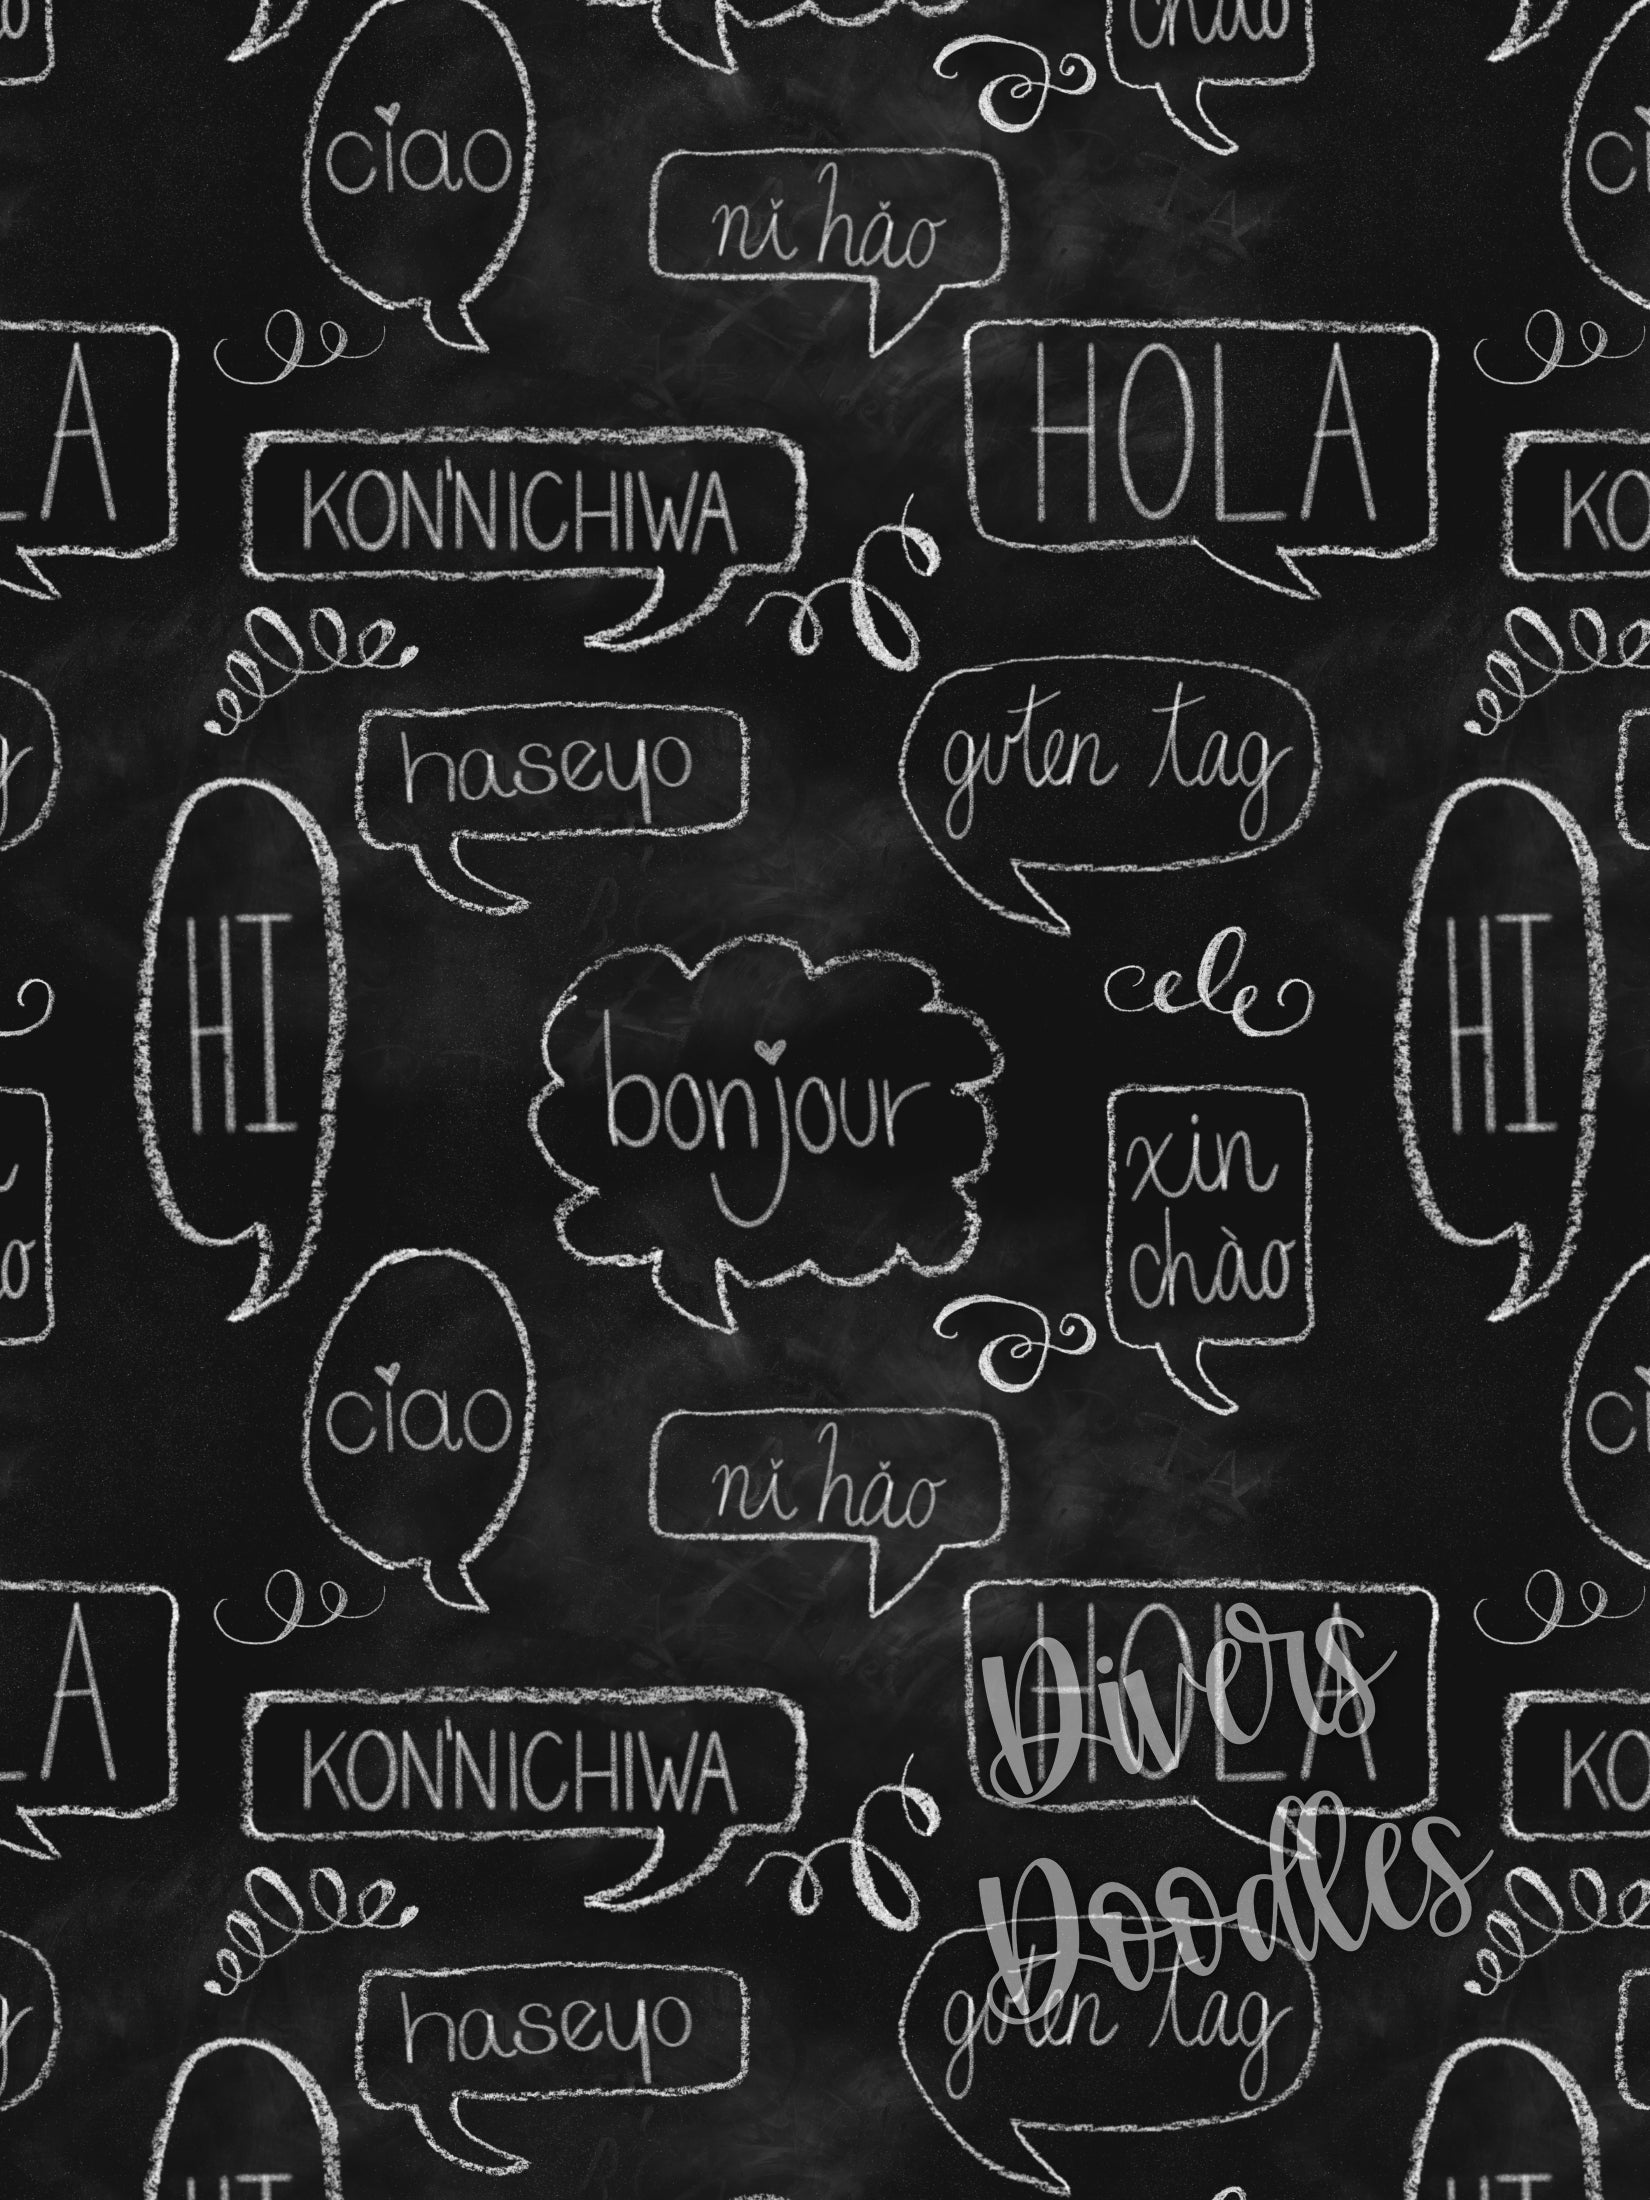 chào
ciao
ci
nǐ hǎo
A
HOLA
KON'NICHIWA
KO
haseyo
guten tag
HI
HI
bonjour
xin
chào
ciao
ci
nǐ hǎo
A
HOLA
Divers
KON'NICHIWA
KO
Doodles
haseyo
guten tag
HI
HI